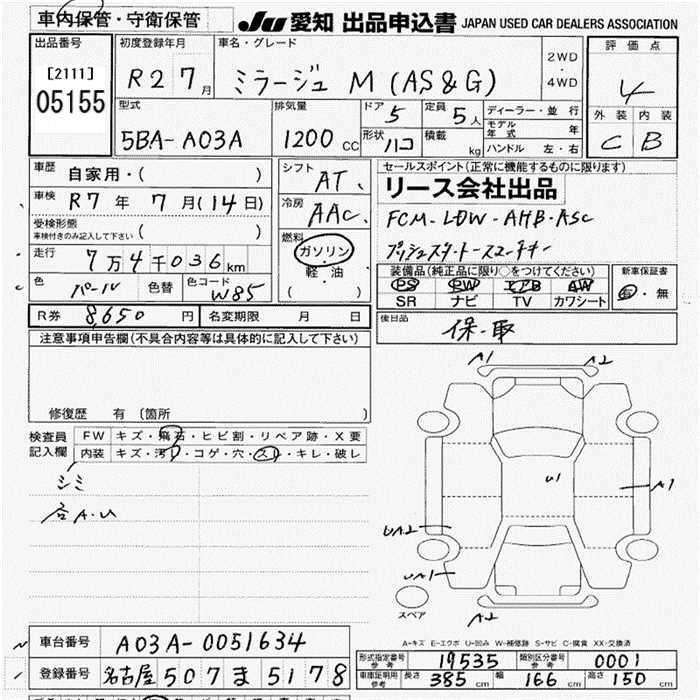 車内保管・守衛保管
JU 愛知 出品申込書 JAPAN USED CAR DEALERS ASSOCIATION
出品番号
[2111]
05155
初度登録年月
R2 7月
車名・グレード
ミラージュ M (AS&G)
2WD
・
4WD
評価点
4
外装 内装
C B
型式
5BA-A03A
排気量
1200 CC
ドア 5
定員 5人
形状 ハコ
積載 kg
ディーラー・並行
モデル年式 年
ハンドル 左・右
車歴 自家用・( )
車検 R7年 7月(14日)
受検形態
車検付きのみ記入して下さい ( )
走行 7万4千036km
色 パール 色替 色コード W85
シフト AT.
冷房 AAC.
燃料
ガソリン
・
軽・油
( )
セールスポイント(正常に機能するものに限ります)
リース会社出品
FCM-LDW-AHB-ASC
装備品(純正品に限り○をつけてください)
PS PW エアB AW
SR ナビ TV カワシート
新車保証書
有・無
R券 8,650円 名変期限 月 日
後日品
保-取
注意事項申告欄(不具合内容等は具体的に記入して下さい)
修復歴 有 〔箇所 〕
検査員記入欄
FW キズ・飛石・ヒビ割・リペア跡・X要
内装 キズ・汚れ・コゲ・穴・スレ・キレ・破レ
シミ
各A.U
A1 A2
U1
A1
UA2
UA1
A2
スペア
A-キズ E-エクボ U-凹み W-補修跡 S-サビ C-腐食 XX-交換済
車台番号 A03A-0051634
登録番号 名古屋 507 ま 5178
形式指定番号 参考 19535 類別区分番号 参考 0001
車庫証明用 参考 長さ 385cm 幅 166cm 高さ 150cm